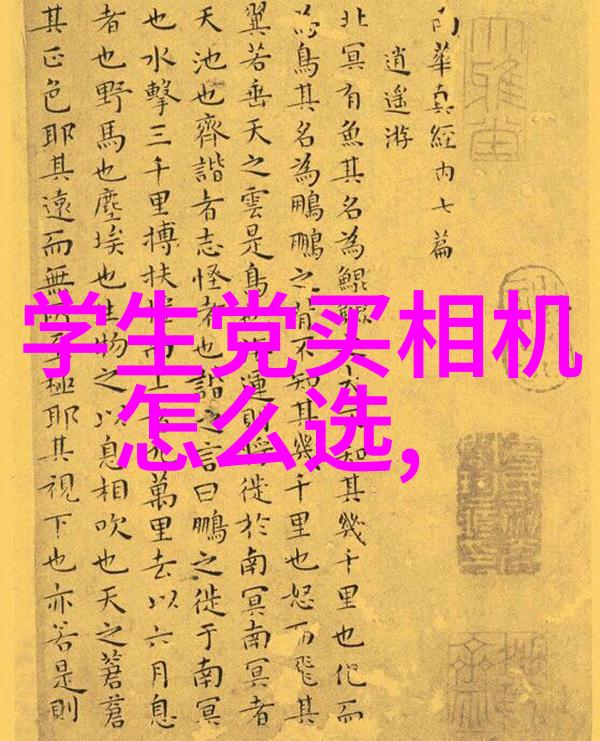 学生党买相机
怎么选,
南華真經内七篇
逍遙游
北冥有魚其名為鯤鯤大不知其幾千里也化而
為鳥其名為鵬鵬之背不知其幾千里也怒而飛其
翼若垂天之雲是鳥也海運則將徙於南冥南冥者
天池也齊諧者志怪者也諧之言曰鵬之徙于南冥
也水擊三千里摶扶而上九萬里去以六月息
者也野馬也塵埃也生物之以息相吹也天之蒼蒼
其正色耶其遠而無所至極耶其視下也亦若是則
大雅堂